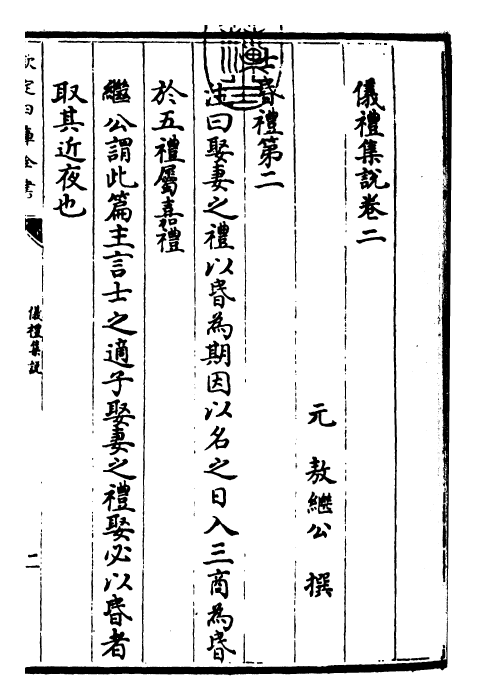 儀禮集說卷二
元 敖繼公 撰
士昏禮第二
注曰娶妻之禮以昏為期因以名之日入三商為昏
於五禮屬嘉禮
繼公謂此篇主言士之適子娶妻之禮娶必以昏者
取其近夜也
欽定四庫全書
儀禮集說
二